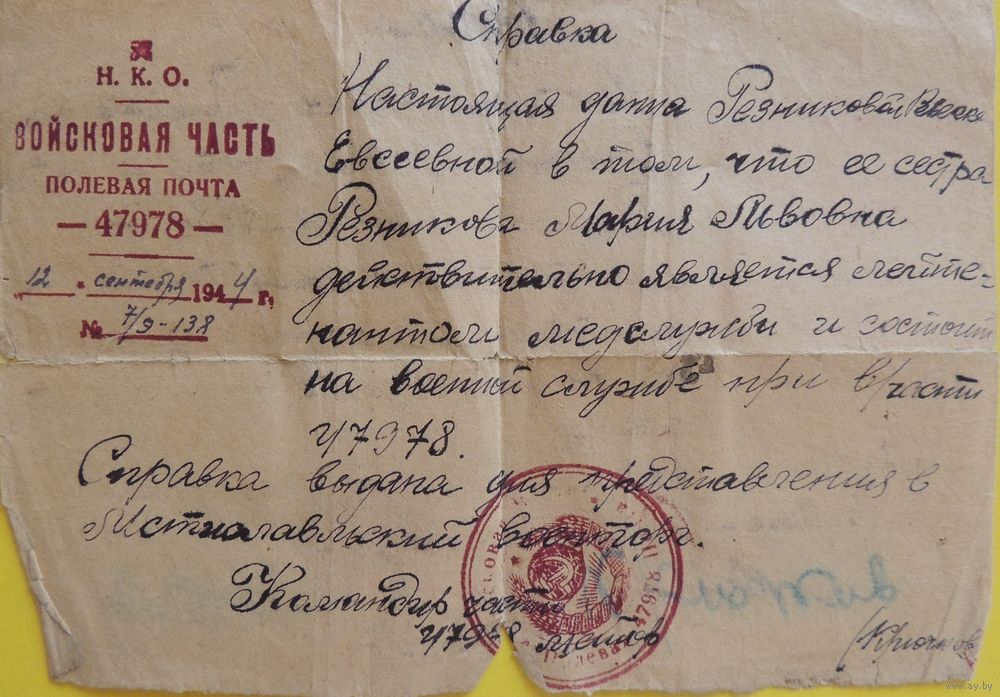 Справка
Н. К. О.
ВОЙСКОВАЯ ЧАСТЬ
ПОЛЕВАЯ ПОЧТА
— 47978 —
12 " сентября 1944 г.
№ 7/9-138
Настоящая дана Резниковой
Евсеевной в том, что ее сестра
Резникова Мария Львовна
действительно является лейте-
нантом медслужбы и состоит
на военной службе при в/части
47978.
Справка выдана для представления в
Мстиславльский военторг.
Командир части
47978
(Крючков)
www.ay.by